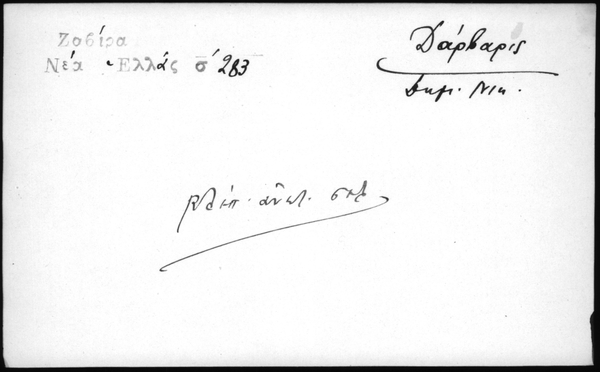 Ζαβίρα
Νέα Ἑλλάς σ 283
Δάρβαρις
Δημ. Νικ.
βλέπ. ἀνωτ. σελ